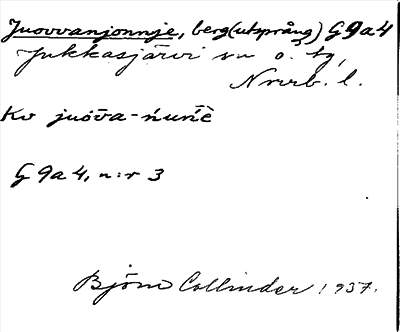 Juovvanjonnje, berg(utsprång) G9a4
Jukkasjärvi sn o. tg,
Nrrb. l.
Kv juōva-ńuńē
G 9a 4, n:r 3
Björn Collinder 1937.